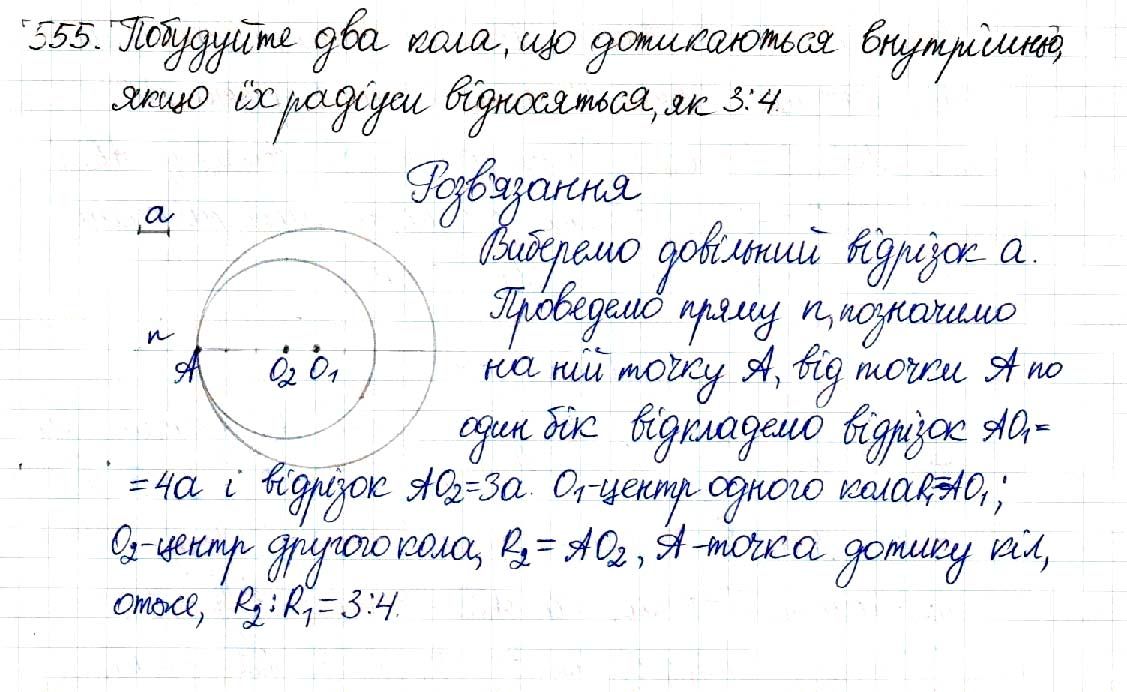 555. Побудуйте два кола, що дотикаються внутрішньо,
якщо їх радіуси відносяться, як 3:4.
Розв'язання
a
Виберемо довільний відрізок a.
Проведемо пряму n, позначимо
n
на ній точку A, від точки A по
A O₂ O₁
один бік відкладемо відрізок AO₁=
=4a і відрізок AO₂=3a. O₁-центр одного кола R₁=AO₁;
O₂-центр другого кола, R₂=AO₂, A-точка дотику кіл,
отже, R₂:R₁=3:4.